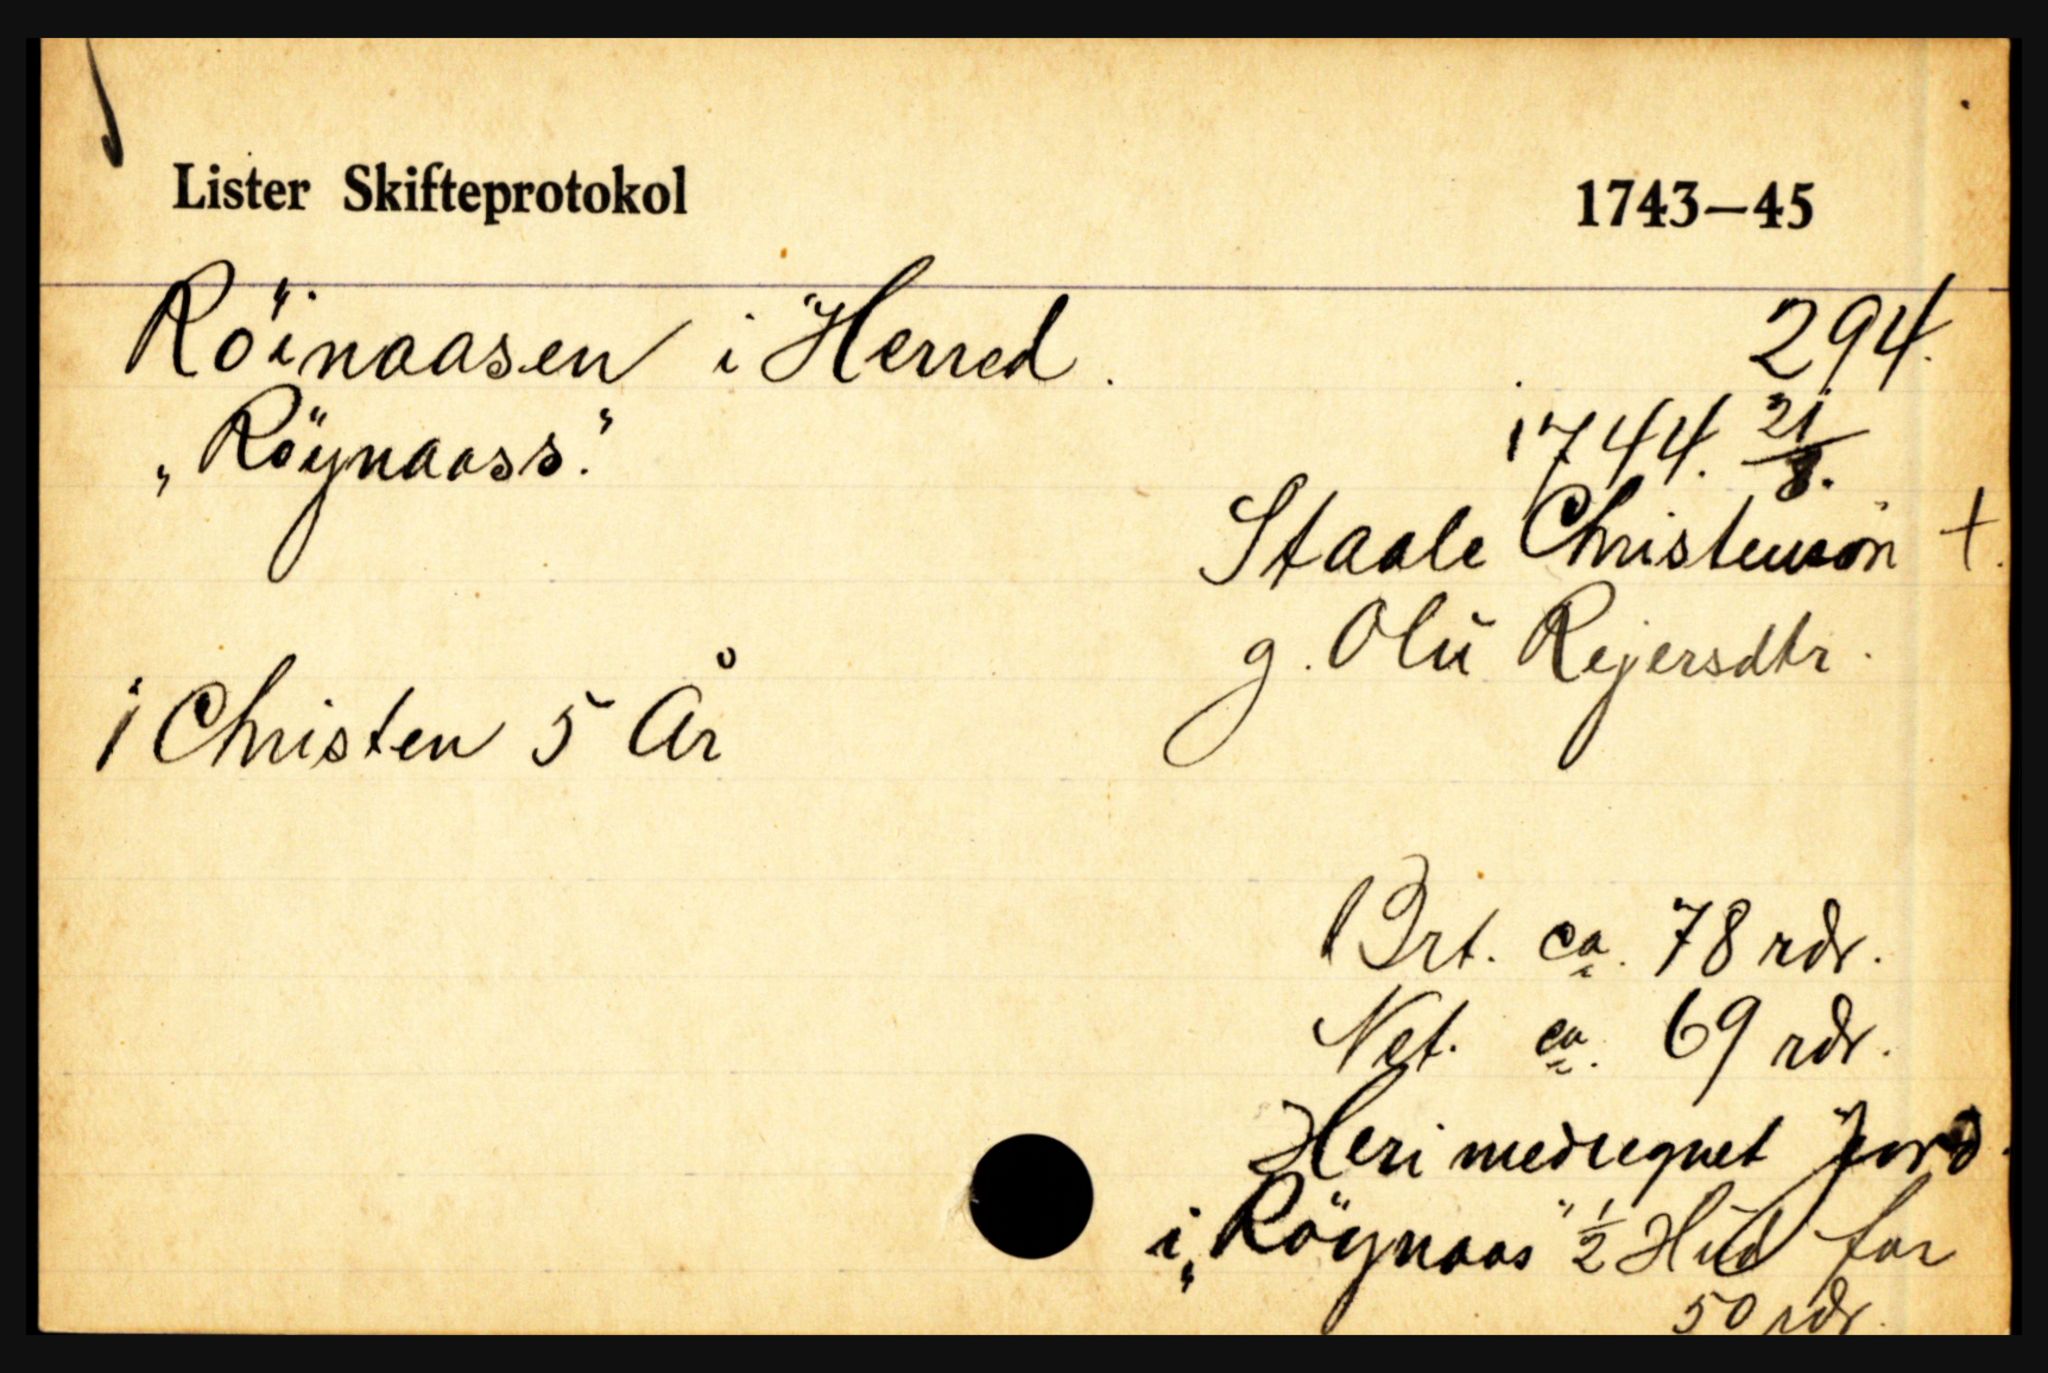 Lister Skifteprotokol 1743–45
Röinaasen i Herred. 294.
„Röynaass." 1744. 21/8.
Staale Christensön +.
g. Olü Rejersdtr.
1 Christen 5 År
Brt. ca. 78 rdr.
Net. ca. 69 rdr.
Heri medregnet Jord
i „Röynaas" 1/2 Hud for
50 rdr.